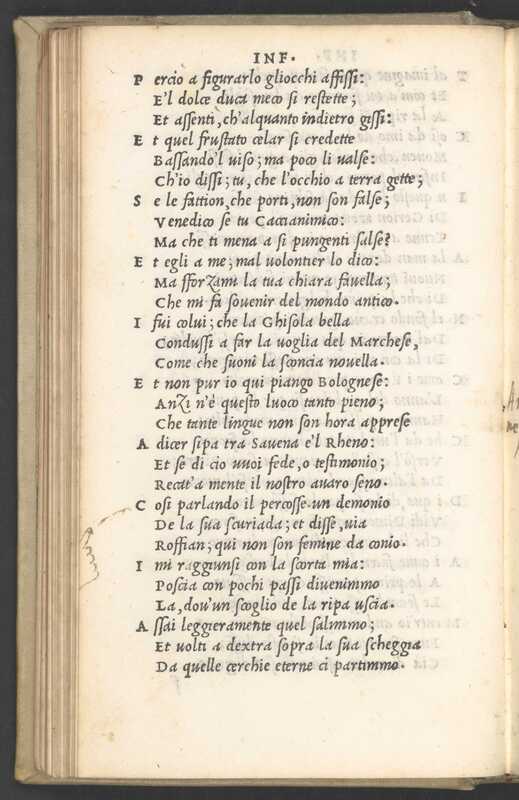 INF.
P ercio a figurarlo gliocchi affissi:
E'l dolce duca meco si restette;
Et assenti, ch'alquanto indietro gissi:
E t quel frustato celar si credette
Bassando'l viso; ma poco li valse:
Ch'io dissi; tu, che l'occhio a terra gette;
S e le fattion, che porti, non son false;
Venedico se tu Caccianimico:
Ma che ti mena a si pungenti salse?
E t egli a me; mal volontier lo dico:
Ma sforzami la tua chiara favella;
Che mi fa sovenir del mondo antico.
I fui colui; che la Ghisola bella
Condussi a far la voglia del Marchese,
Come che suoni la sconcia novella.
E t non pur io qui piango Bolognese:
Anzi n'è questo luoco tanto pieno;
Che tante lingue non son hora apprese
A dicer sipa tra Savena e'l Rheno:
Et se di cio vuoi fede, o testimonio;
Recat'a mente il nostro avaro seno.
C osi parlando il percosse un demonio
De la sua scuriada; et disse, via
Roffian; qui non son femine da conio.
I mi raggiunsi con la scorta mia:
Poscia con pochi passi divenimmo
La, dov'un scoglio de la ripa uscia.
A ssai leggieramente quel salimmo;
Et volti a dextra sopra la sua scheggia
Da quelle cerchie eterne ci partimmo.